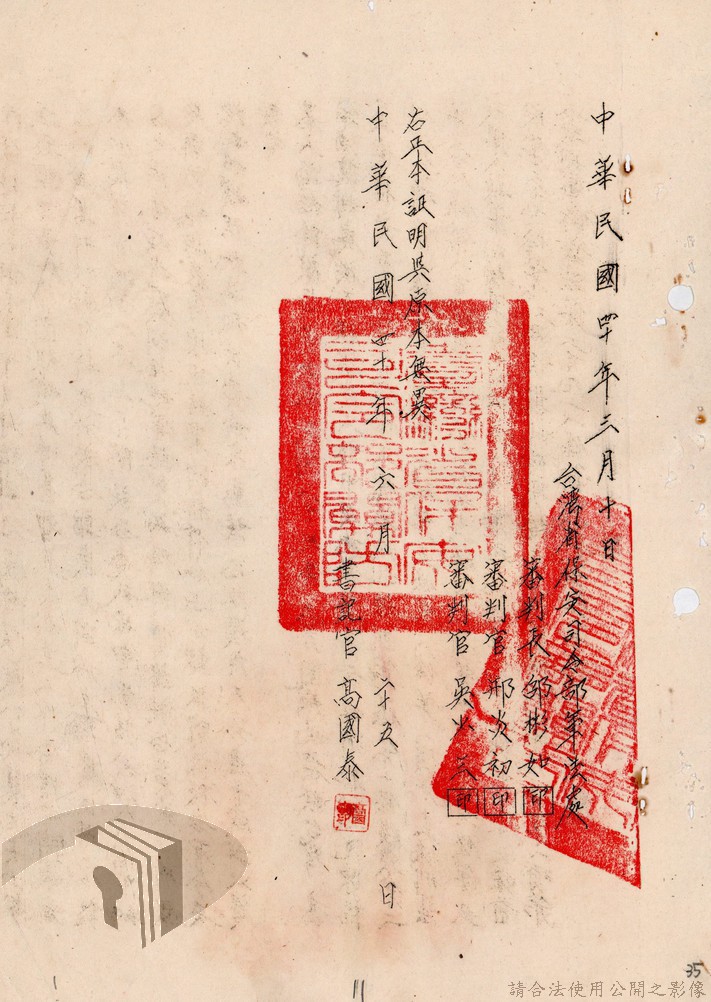 中華民國四十年三月十日
台灣省保安司令部軍法處
審判長 邱彬如 印
審判官 邢炎初 印
審判官 吳 印
右正本証明與原本無異
中華民國四十年六月廿五日
書記官 高國泰
35
請合法使用公開之影像